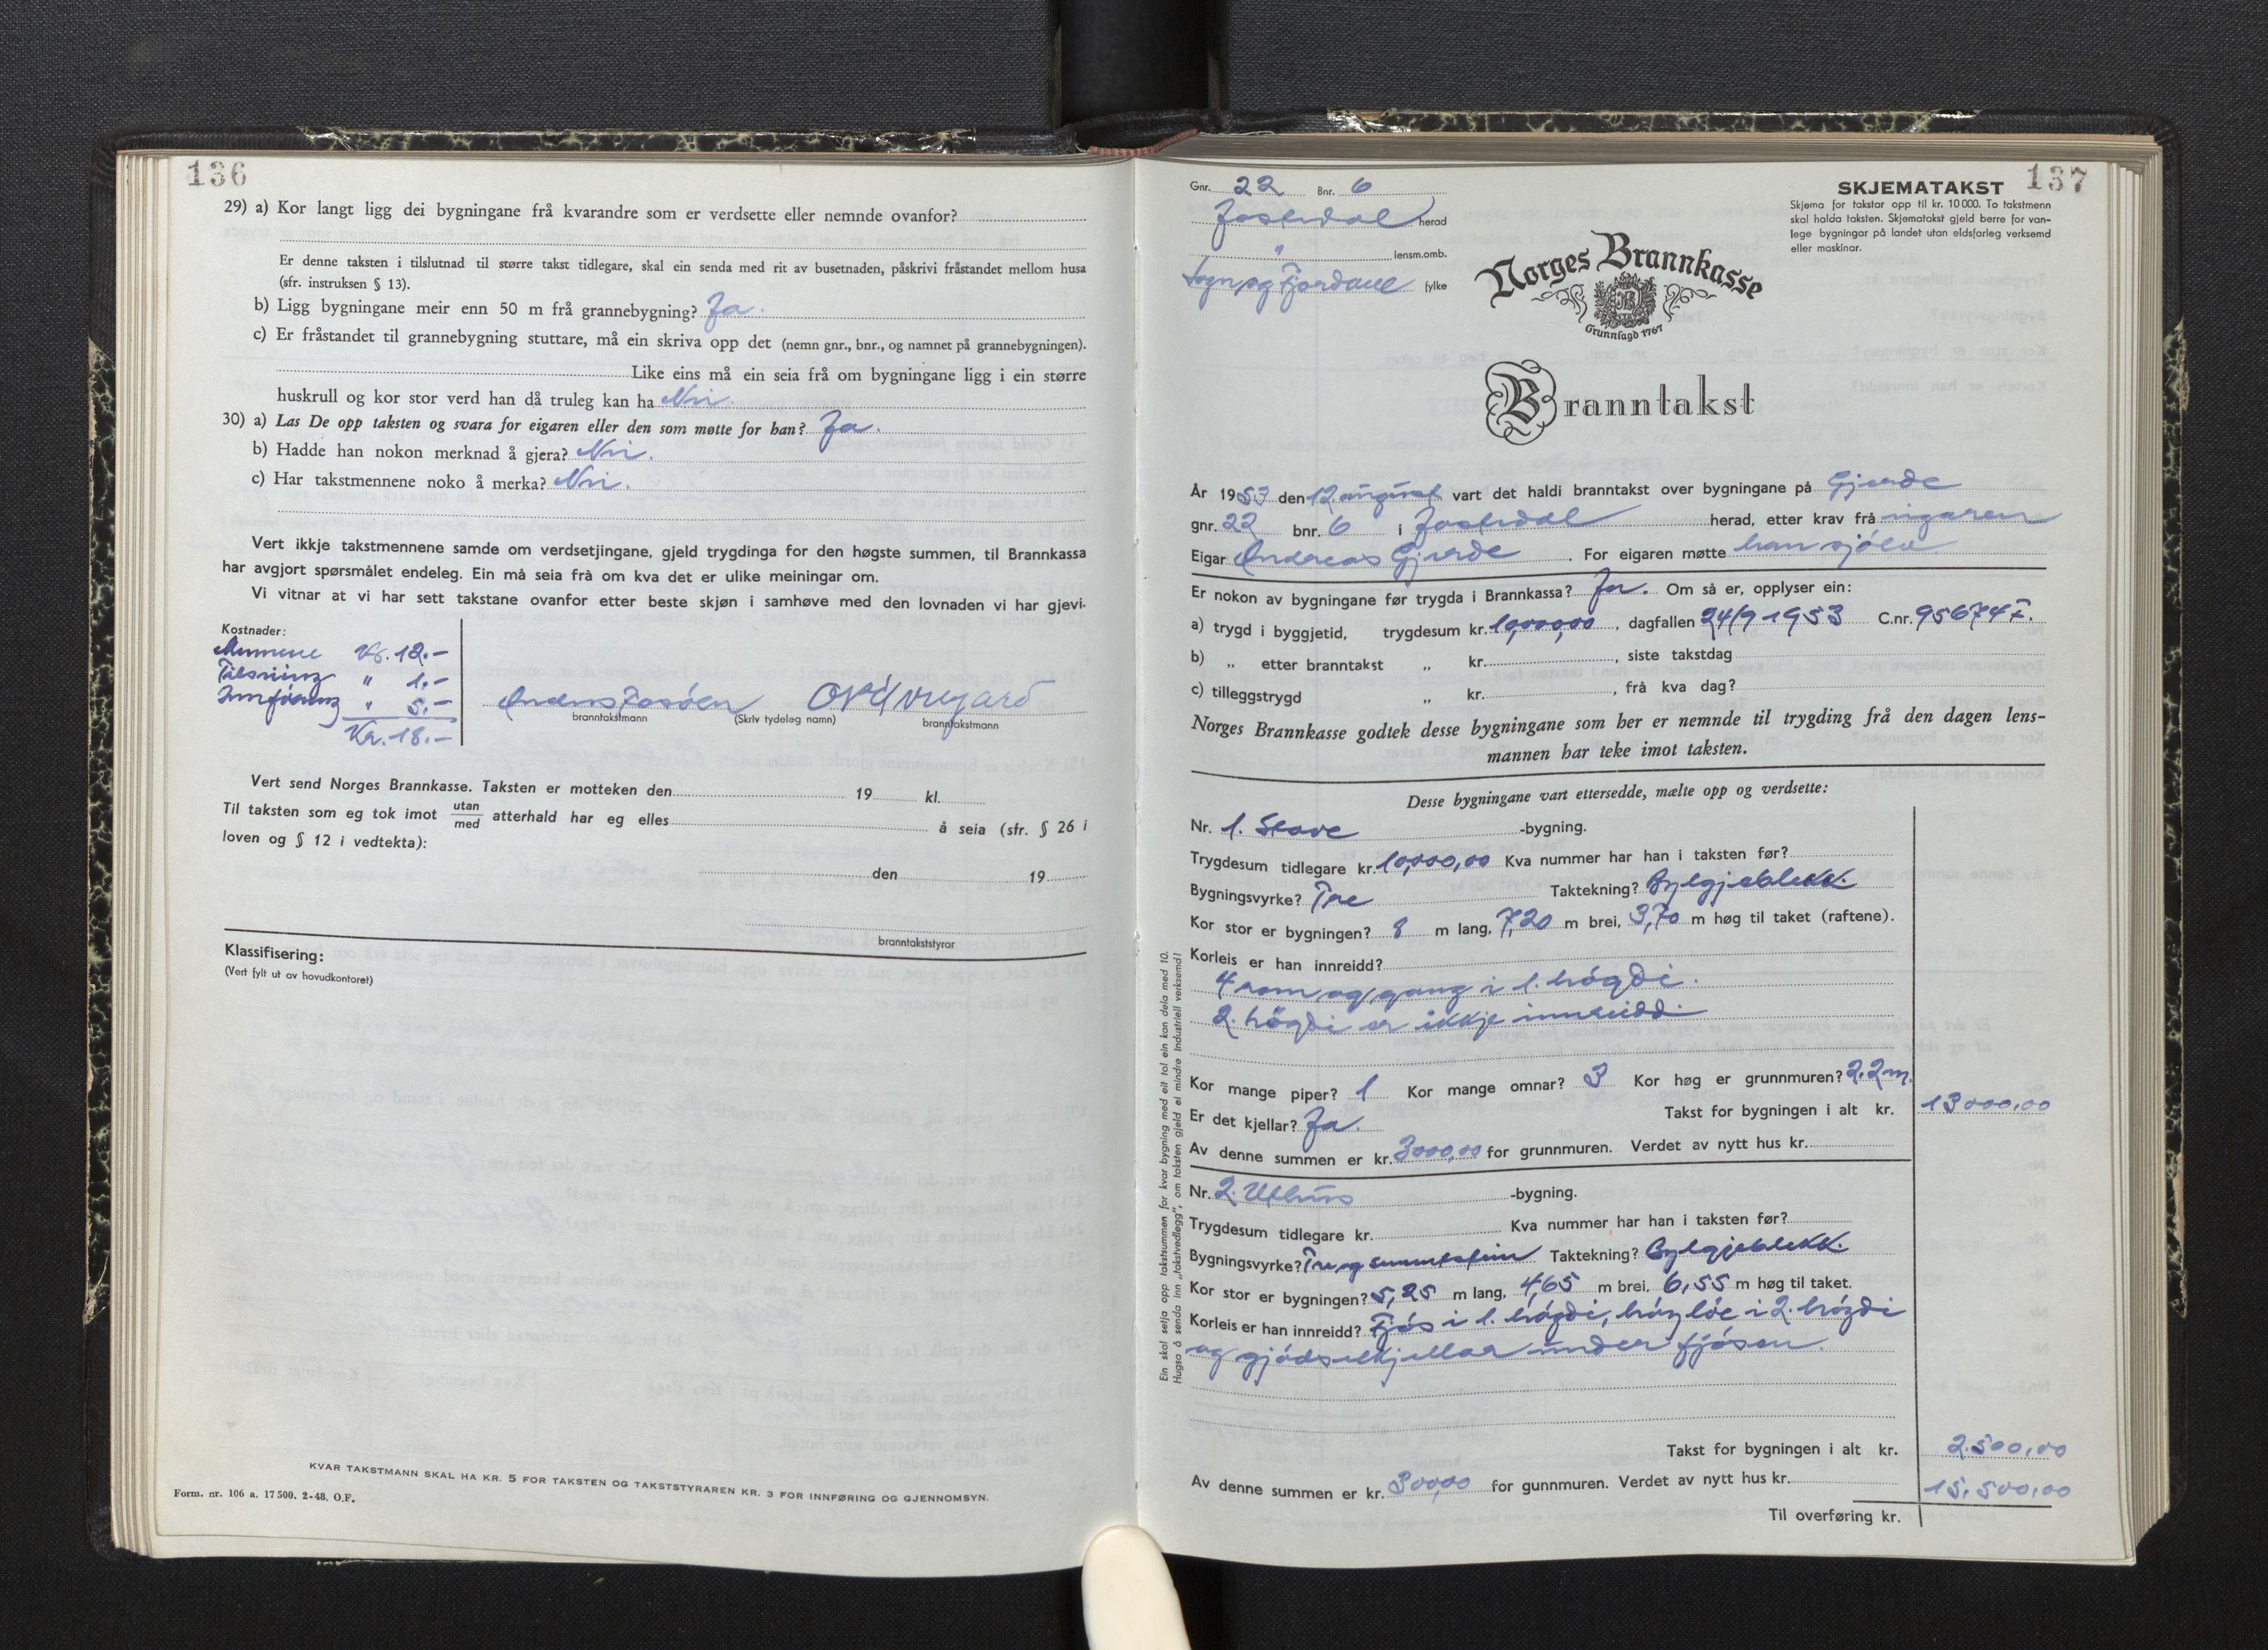 136
29) a) Kor langt ligg dei bygningane frå kvarandre som er verdsette eller nemnde ovanfor?
Er denne taksten i tilslutnad til større takst tidlegare, skal ein senda med rit av busetnaden, påskrivi fråstandet mellom husa
(sfr. instruksen § 13).
b) Ligg bygningane meir enn 50 m frå grannebygning? Ja.
c) Er fråstandet til grannebygning stuttare, må ein skriva opp det (nemn gnr., bnr., og namnet på grannebygningen).
Like eins må ein seia frå om bygningane ligg i ein større
huskrull og kor stor verd han då truleg kan ha Nei.
30) a) Las De opp taksten og svara for eigaren eller den som møtte for han? Ja.
b) Hadde han nokon merknad å gjera? Nei.
c) Har takstmennene noko å merka? Nei.
Vert ikkje takstmennene samde om verdsetjingane, gjeld trygdinga for den høgste summen, til Brannkassa
har avgjort spørsmålet endeleg. Ein må seia frå om kva det er ulike meiningar om.
Vi vitnar at vi har sett takstane ovanfor etter beste skjøn i samhøve med den lovnaden vi har gjevi.
Kostnader:
Mennene Kr. 12.-
Tilsining " 1.-
Innføring " 5.-
Kr. 18.-
Anders Fosøen
branntakstmann (Skriv tydeleg namn) branntakstmann
Vert send Norges Brannkasse. Taksten er motteken den 19 kl.
Til taksten som eg tok imot utan/med atterhald har eg elles å seia (sfr. § 26 i
loven og § 12 i vedtekta):
den 19
branntakststyrar
Klassifisering:
(Vert fylt ut av hovudkontoret)
KVAR TAKSTMANN SKAL HA KR. 5 FOR TAKSTEN OG TAKSTSTYRAREN KR. 3 FOR INNFØRING OG GJENNOMSYN.
Form. nr. 106 a. 17 500. 2-48. O.F.
137
Gnr. 22 Bnr. 6
Jostedal herad
" lensm.omb.
Sogn og Fjordane fylke
SKJEMATAKST
Skjema for takstar opp til kr. 10 000. To takstmenn
skal halda taksten. Skjematakst gjeld berre for van-
lege bygningar på landet utan eldsfarleg verksemd
eller maskinar.
Norges Brannkasse
Grunnlagd 1767
Branntakst
År 1953 den 12 august vart det haldi branntakst over bygningane på Gjerde
gnr. 22 bnr. 6 i Jostedal herad, etter krav frå eigaren
Eigar Andreas Gjerde. For eigaren møtte han sjølv
Er nokon av bygningane før trygda i Brannkassa? Ja. Om så er, opplyser ein:
a) trygd i byggjetid, trygdesum kr. 10,000,00, dagfallen 24/9 1953 C.nr. 95674 F.
b) „ etter branntakst „ kr. , siste takstdag
c) tilleggstrygd „ kr. , frå kva dag?
Norges Brannkasse godtek desse bygningane som her er nemnde til trygding frå den dagen lens-
mannen har teke imot taksten.
Desse bygningane vart ettersedde, mælte opp og verdsette:
Nr. 1. Stove -bygning.
Trygdesum tidlegare kr. 10,000,00 Kva nummer har han i taksten før?
Bygningsvyrke? Tre Taktekning? Bylgjeblekk.
Kor stor er bygningen? 8 m lang, 7,20 m brei, 3,70 m høg til taket (raftene).
Korleis er han innreidd?
4 rom og gang i 1. høgdi.
2. høgdi er ikkje innreidd.
Kor mange piper? 1 Kor mange omnar? 3 Kor høg er grunnmuren? 2.2 m.
Er det kjellar? Ja. Takst for bygningen i alt kr. 13000,00
Av denne summen er kr. 3000,00 for grunnmuren. Verdet av nytt hus kr.
Nr. 2. Uthus -bygning.
Trygdesum tidlegare kr. Kva nummer har han i taksten før?
Bygningsvyrke? Tre og sementstein Taktekning? Bylgjeblekk.
Kor stor er bygningen? 5,25 m lang, 4,65 m brei, 6,55 m høg til taket.
Korleis er han innreidd? Fjøs i 1. høgdi, høyløe i 2. høgdi
og gjødselkjellar under fjøsen.
Takst for bygningen i alt kr. 2.500,00
Av denne summen er kr. 300,00 for gunnmuren. Verdet av nytt hus kr.
15.500,00
Til overføring kr.
Ein skal setja opp takstsummen for kvar bygning med eit tal ein kan dela med 10.
Hugsa å senda inn „takstvedlegg", om taksten gjeld ei mindre industriell verksemd!